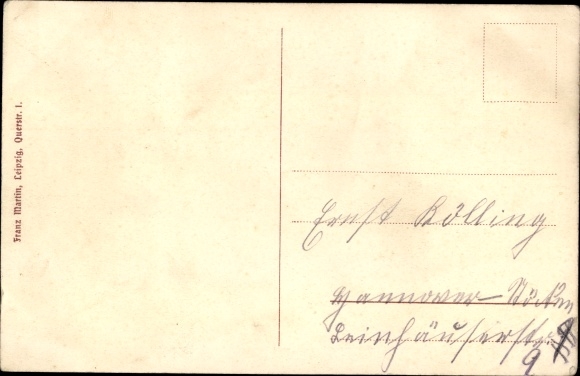 Franz Martin, Leipzig, Querstr. 1.
Ernst Kölling
Hannover-Stöcken
Leinhäuserstr.
9